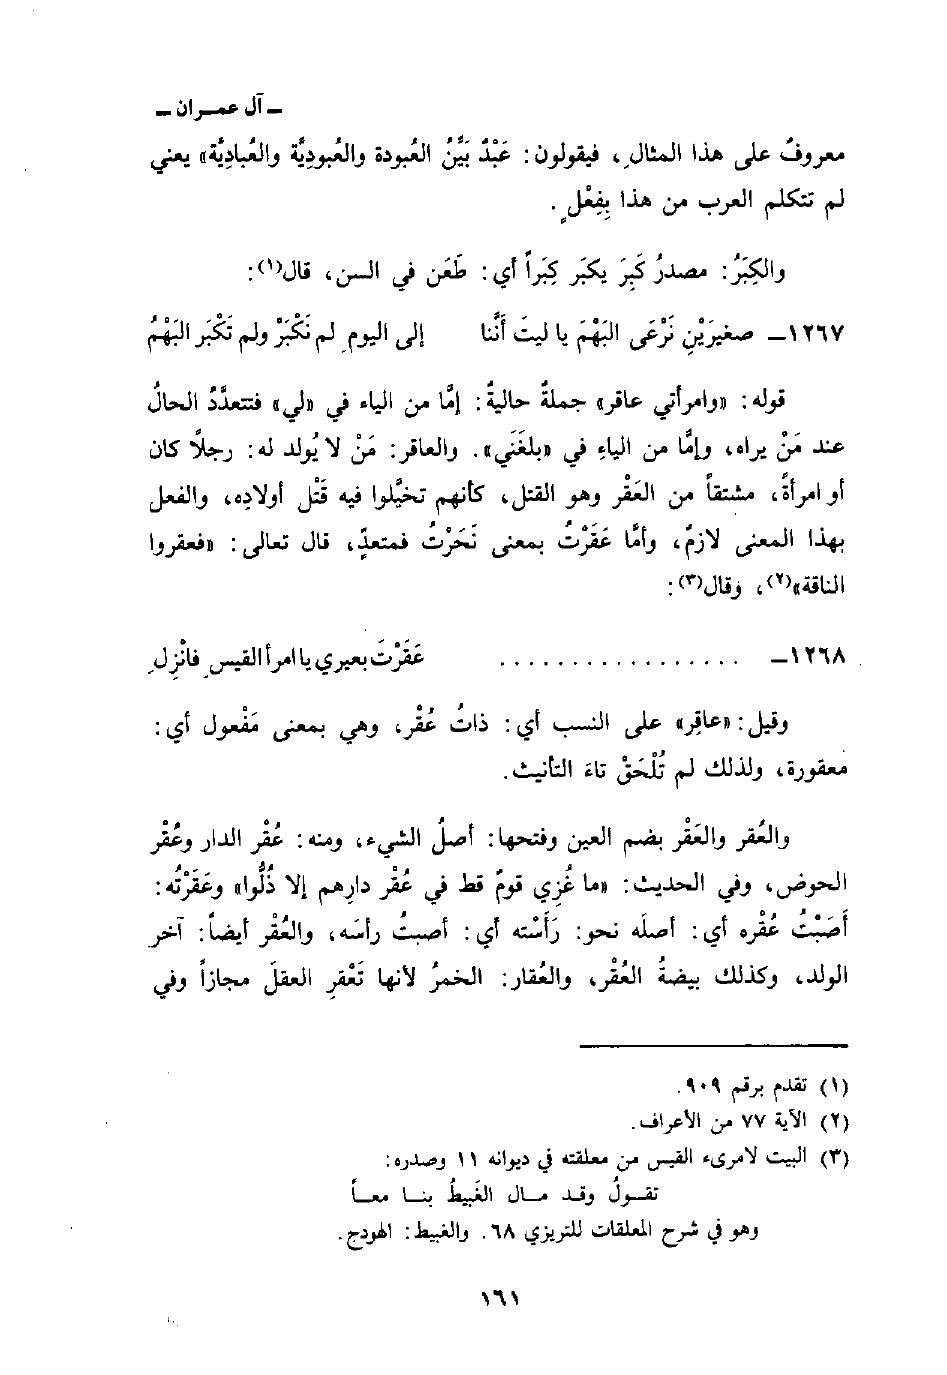 ـ آل عمـران ـ
معروفٌ على هذا المثالِ، فيقولون: عَبْدٌ بَيِّنُ العُبودة والعُبودِيَّة والعُبادِيَّة» يعني
لم تتكلم العرب من هذا بِفِعْلٍ.
والكِبَرُ: مصدرُ كَبِرَ يكبَر كِبَراً أي: طَعَن في السن، قال(١):
١٢٦٧ـ صغيرَيْنِ نَرْعَى البَهْمَ يا ليتَ أنَّنا إلى اليومِ لم نَكْبَرْ ولم تَكْبَر البَهْمُ
قوله: «وامرأتي عاقر» جملةٌ حاليةٌ: إمَّا من الياء في «لي» فتتعدَّدُ الحالُ
عند مَنْ يراه، وإمَّا من الياءِ في «بلغَني». والعاقر: مَنْ لا يُولد له: رجلاً كان
أو امرأةً، مشتقاً من العَقْر وهو القتل، كأنهم تخيَّلوا فيه قَتْل أولادِه، والفعل
بهذا المعنى لازمٌ، وأمَّا عَقَرْتُ بمعنى نَحَرْتُ فمتعدٍّ، قال تعالى: «فعقروا
الناقة»(٢)، وقال(٣):
١٢٦٨ـ . . . . . . . . . . . . . . . . . عَقَرْتَ بعيري يا امرأ القيسِ فانْزِلِ
وقيل: «عاقِر» على النسب أي: ذاتُ عُقْر، وهي بمعنى مَفْعول أي:
معقورة، ولذلك لم تُلْحَقْ تاءَ التأنيث.
والعُقر والعَقْر بضم العين وفتحها: أصلُ الشيء، ومنه: عُقْر الدار وعُقْر
الحوض، وفي الحديث: «ما غُزِي قومٌ قط في عُقْر دارِهم إلا ذُلُّوا» وعَقَرْتُه:
أَصَبْتُ عُقْره أي: أصلَه نحو: رَأَسْته أي: أصبتُ رأسَه، والعُقْر أيضاً: آخر
الولد، وكذلك بيضةُ العُقْر، والعُقار: الخمرُ لأنها تَعْقِر العقلَ مجازاً وفي
(١) تقدم برقم ٩٠٩.
(٢) الآية ٧٧ من الأعراف.
(٣) البيت لامرىء القيس من معلقته في ديوانه ١١ وصدره:
تقـولُ وقـد مـال الغَبيطُ بنـا معـاً
وهو في شرح المعلقات للتبريزي ٦٨. والغبيط: الهودج.
١٦١